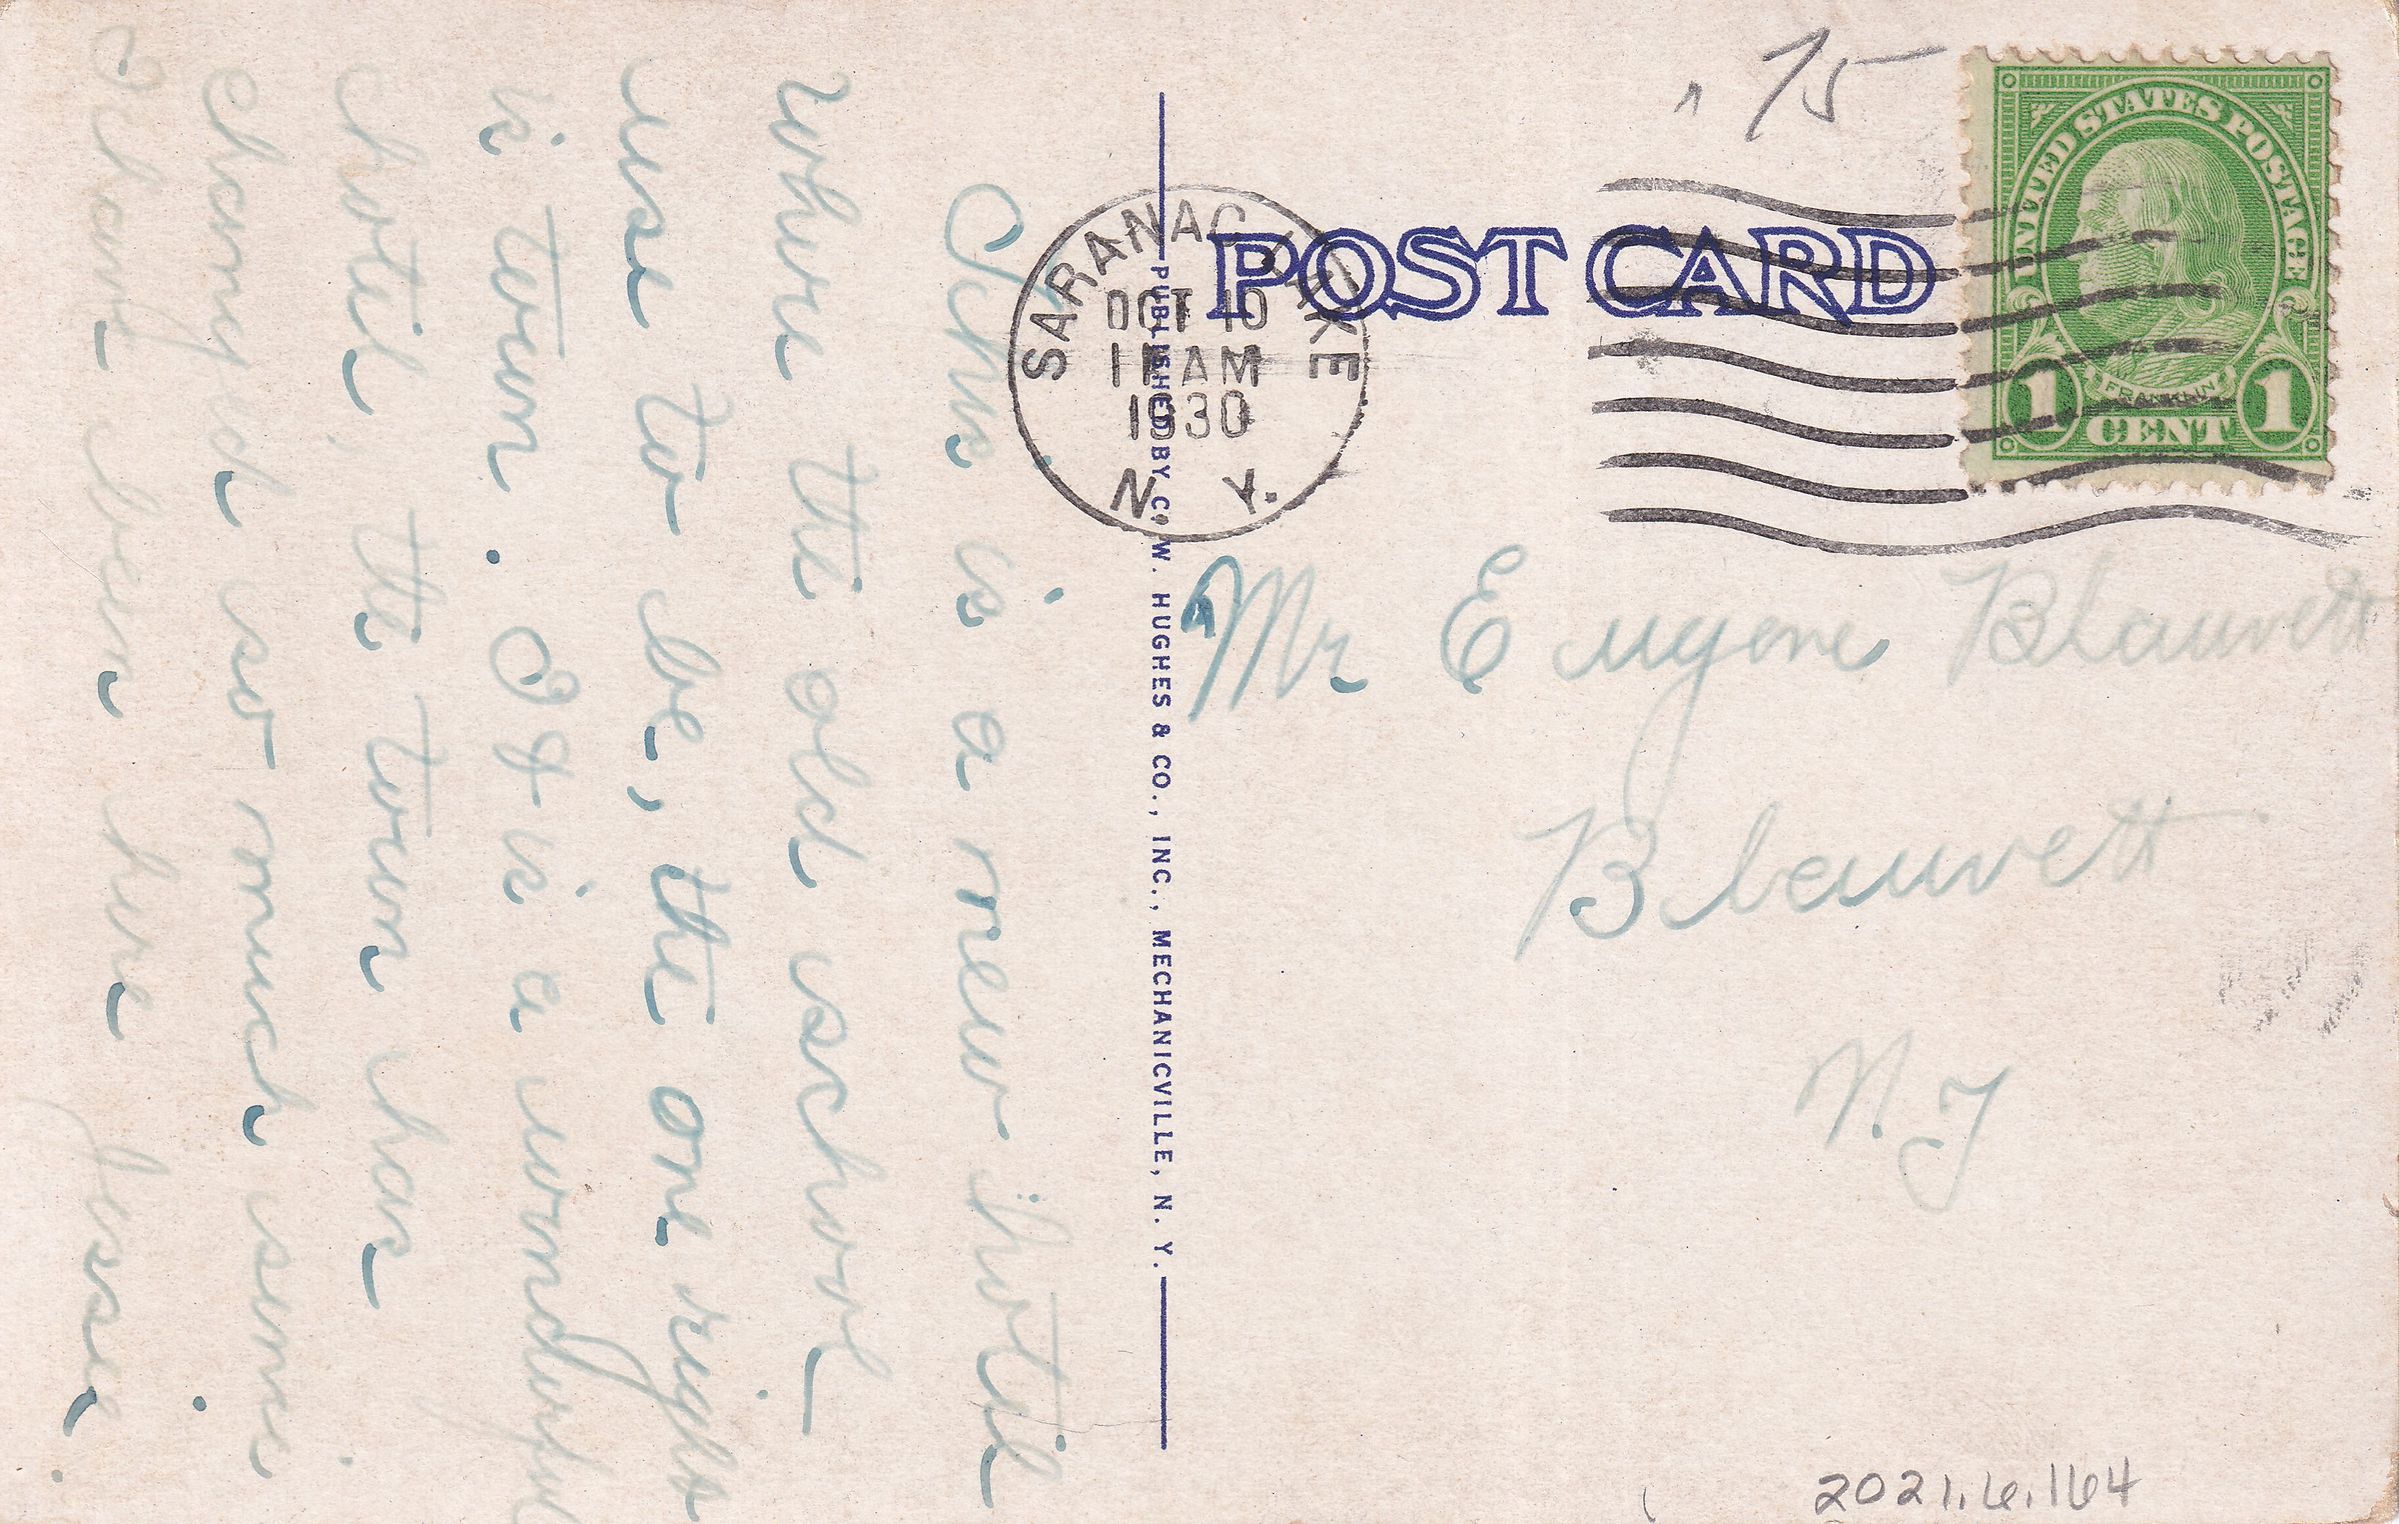 .75
UNITED STATES POSTAGE
FRANKLIN
1 CENT 1
POST CARD
SARANAC LAKE
OCT 10
11 AM
1930
N. Y.
PUBLISHED BY C. W. HUGHES & CO., INC., MECHANICVILLE, N. Y.
This is a new hotil
where the old school
use to be, the one right
is town. It is a wonderful
hotil, the town has
changed so much sinse
I have been here Jessie.
Mr Eugene Blauvelt
Blauvelt
N. Y
2021.6.164